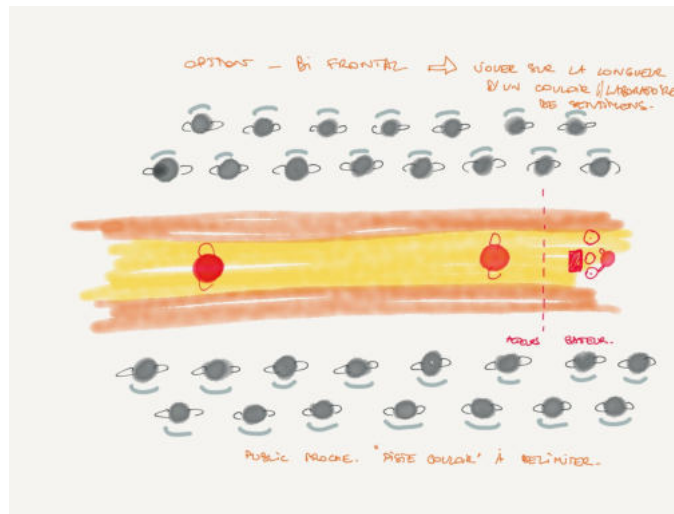 OPTION - BI FRONTAL ⇨ JOUER SUR LA LONGUEUR
D'UN COULOIR / LABORATOIRE
DE SENTIMENS.
ACTEURS BATTEUR.
PUBLIC PROCHE. "PISTE COULOIR" À DELIMITER.